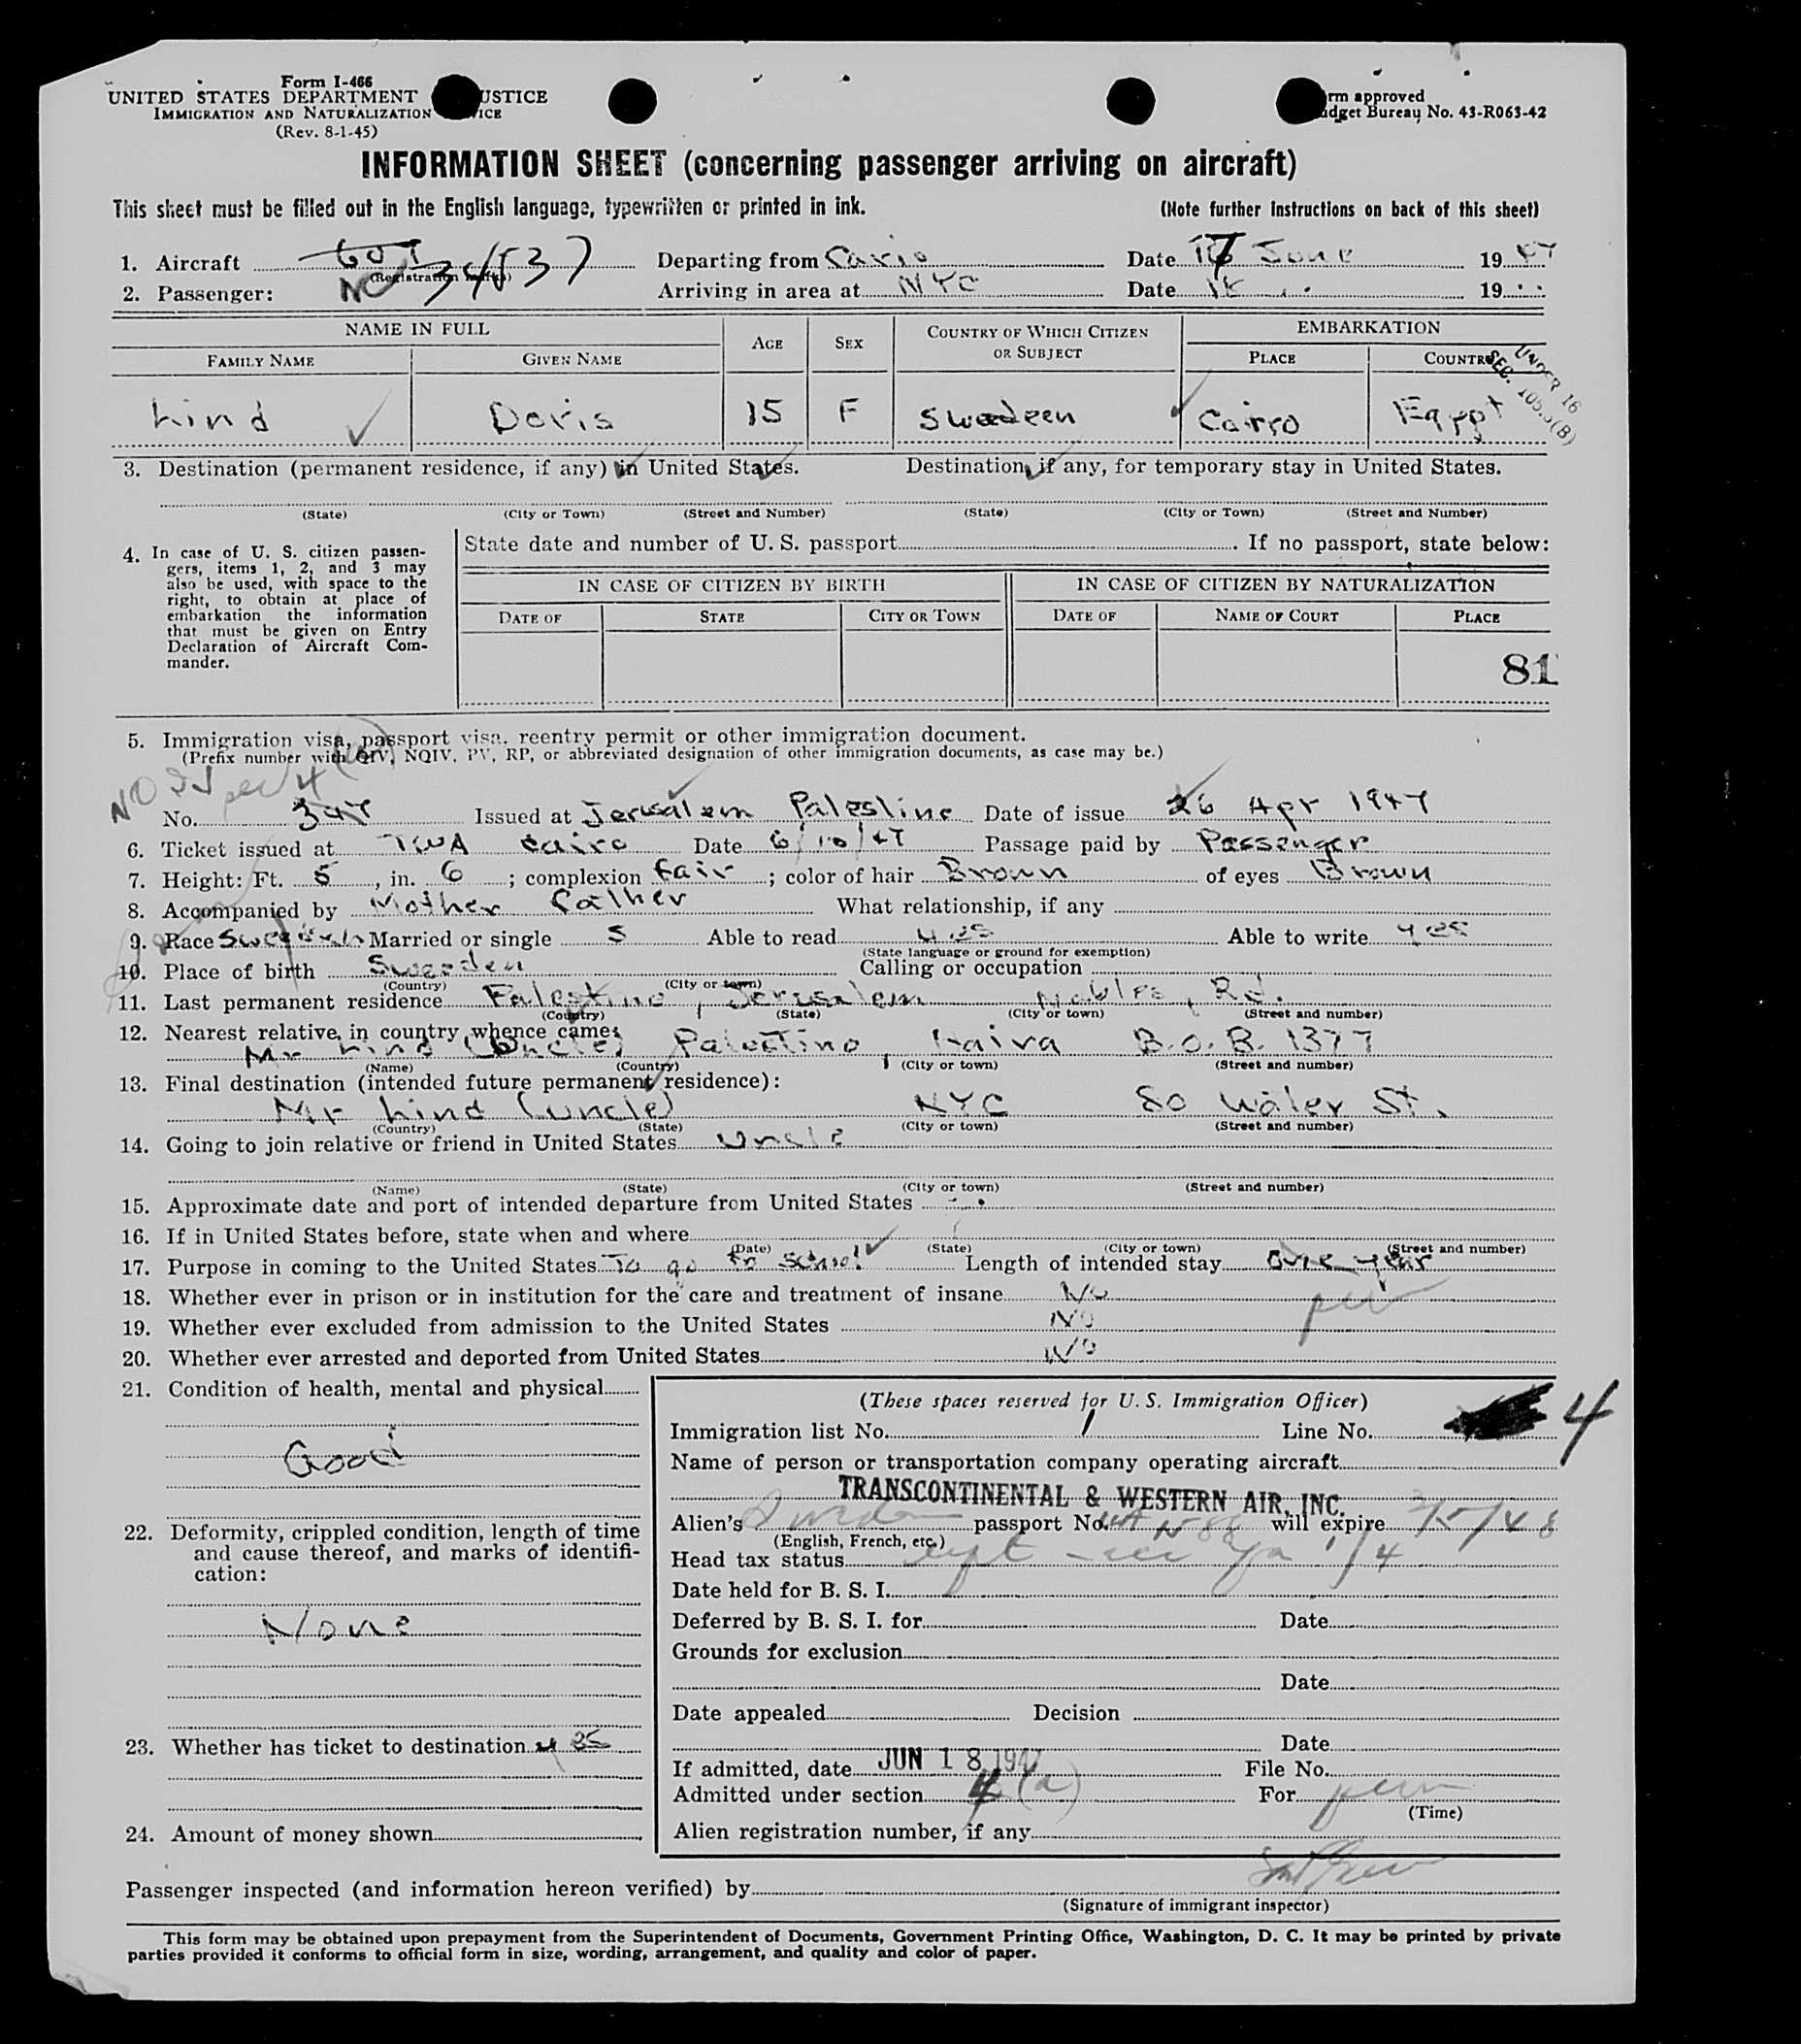 Form I-466
UNITED STATES DEPARTMENT USTICE
IMMIGRATION AND NATURALIZATION ICE
(Rev. 8-1-45)
rm approved
dget Bureau No. 43-R063-42
INFORMATION SHEET (concerning passenger arriving on aircraft)
This sheet must be filled out in the English language, typewritten or printed in ink. (Note further instructions on back of this sheet)
1. Aircraft NC 34537 Departing from Cairo Date 17 June 1947
(Registration marks)
2. Passenger: Arriving in area at NYC Date 18 " 19 "
NAME IN FULL AGE SEX COUNTRY OF WHICH CITIZEN OR SUBJECT EMBARKATION
FAMILY NAME GIVEN NAME PLACE COUNTRY
UNDER 16
SEC. 105.3(B)
Lind Doris 15 F Swedeen Cairo Egypt
3. Destination (permanent residence, if any) in United States. Destination, if any, for temporary stay in United States.
(State) (City or Town) (Street and Number) (State) (City or Town) (Street and Number)
4. In case of U. S. citizen passen-
gers, items 1, 2, and 3 may
also be used, with space to the
right, to obtain at place of
embarkation the information
that must be given on Entry
Declaration of Aircraft Com-
mander.
State date and number of U. S. passport. If no passport, state below:
IN CASE OF CITIZEN BY BIRTH IN CASE OF CITIZEN BY NATURALIZATION
DATE OF STATE CITY OR TOWN DATE OF NAME OF COURT PLACE
81
5. Immigration visa, passport visa, reentry permit or other immigration document.
(Prefix number with QIV, NQIV, PV, RP, or abbreviated designation of other immigration documents, as case may be.)
No. 347 Issued at Jerusalem Palestine Date of issue 26 Apr 1947
6. Ticket issued at TWA Cairo Date 6/10/47 Passage paid by Passenger
7. Height: Ft. 5, in. 6; complexion fair; color of hair Brown of eyes Brown
8. Accompanied by Mother Father What relationship, if any
9. Race Sweedish Married or single S Able to read yes Able to write yes
(State language or ground for exemption)
10. Place of birth Sweeden Calling or occupation
(Country) (City or town)
11. Last permanent residence Palestine, Jerusalem Nables, Rd.
(Country) (State) (City or town) (Street and number)
12. Nearest relative in country whence came:
Mr Lind (Uncle) Palestino, Haiva B.O.B. 1377
(Name) (Country) (City or town) (Street and number)
13. Final destination (intended future permanent residence):
Mr Lind (uncle) NYC 80 Water St.
(Country) (State) (City or town) (Street and number)
14. Going to join relative or friend in United States Uncle
(Name) (State) (City or town) (Street and number)
15. Approximate date and port of intended departure from United States
16. If in United States before, state when and where
(Date) (State) (City or town) (Street and number)
17. Purpose in coming to the United States To go to school Length of intended stay one year
18. Whether ever in prison or in institution for the care and treatment of insane No
19. Whether ever excluded from admission to the United States No
20. Whether ever arrested and deported from United States No
21. Condition of health, mental and physical
Good
22. Deformity, crippled condition, length of time
and cause thereof, and marks of identifi-
cation:
None
23. Whether has ticket to destination yes
24. Amount of money shown
(These spaces reserved for U. S. Immigration Officer)
Immigration list No. 1 Line No. 4
Name of person or transportation company operating aircraft
TRANSCONTINENTAL & WESTERN AIR, INC.
Alien's Sweden passport No. will expire
(English, French, etc.)
Head tax status
Date held for B. S. I.
Deferred by B. S. I. for Date
Grounds for exclusion
Date
Date appealed Decision
Date
If admitted, date JUN 18 1947 File No.
Admitted under section 4(a) For perm
(Time)
Alien registration number, if any
Passenger inspected (and information hereon verified) by
(Signature of immigrant inspector)
This form may be obtained upon prepayment from the Superintendent of Documents, Government Printing Office, Washington, D. C. It may be printed by private
parties provided it conforms to official form in size, wording, arrangement, and quality and color of paper.